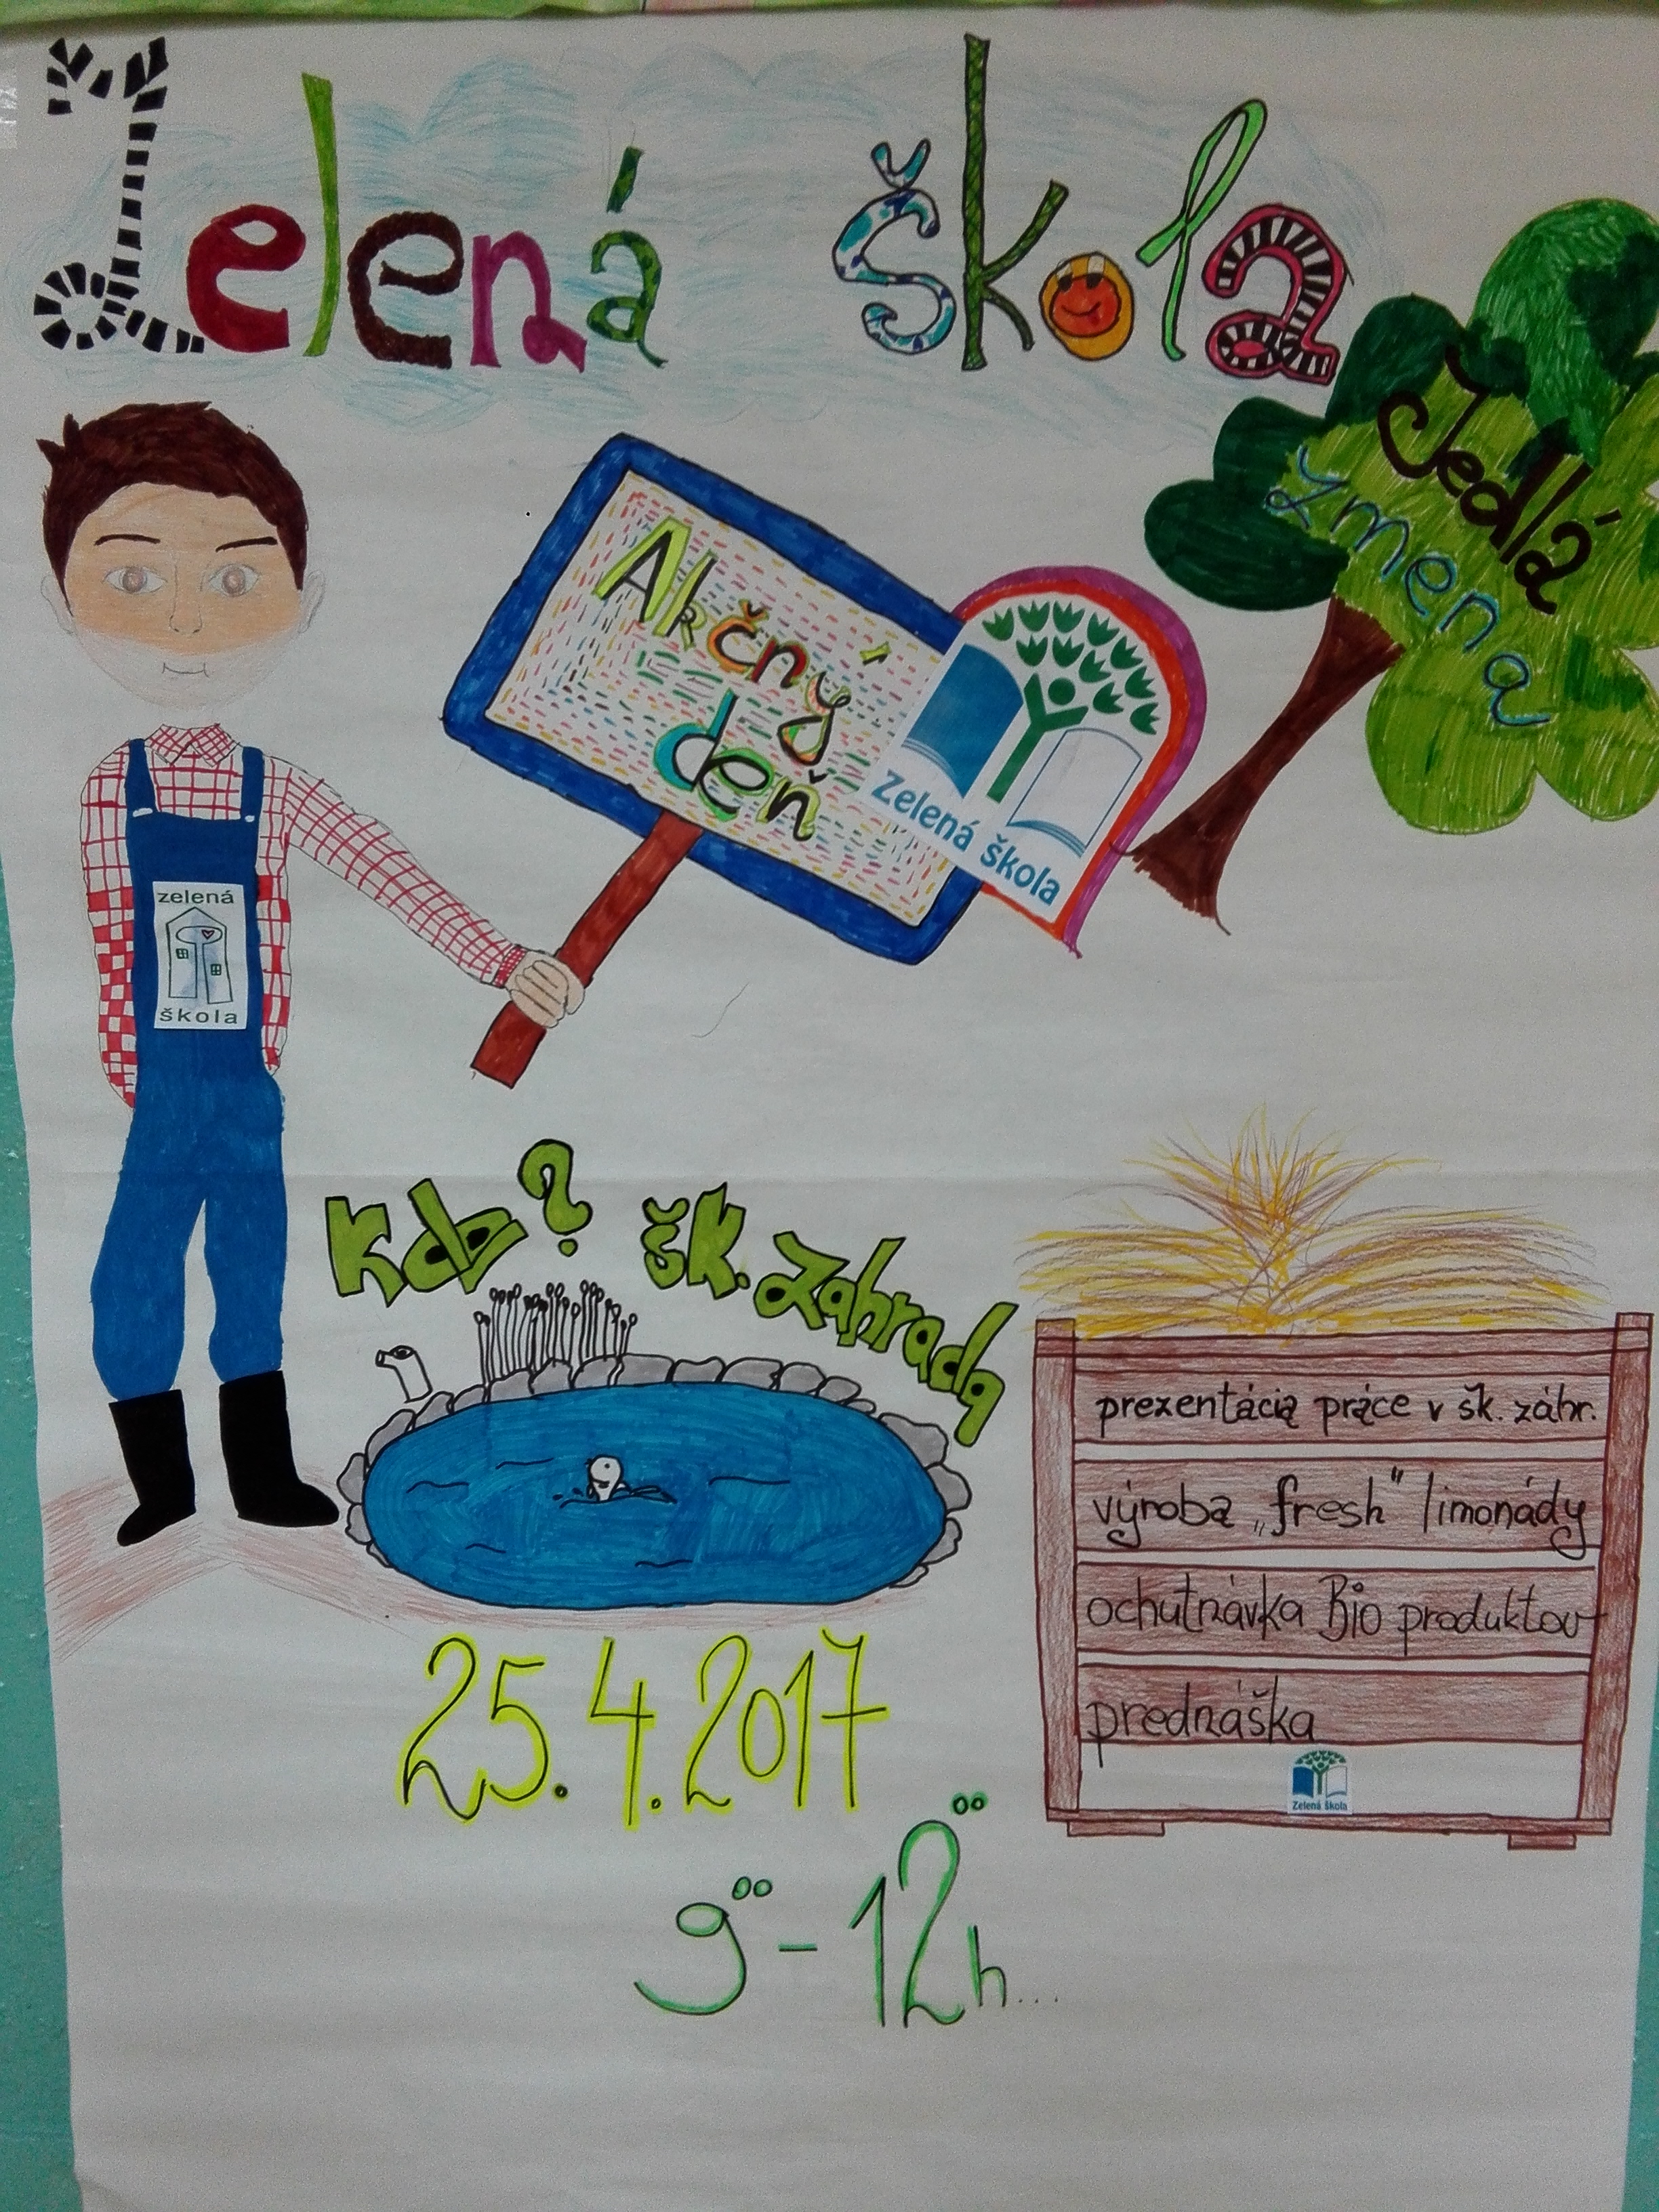 Zelená škola
Jedlá
zmena
Akčný
deň
Zelená škola
zelená
škola
Kde? šk. zahrada
prezentácia práce v šk. záhr.
výroba „fresh" limonády
ochutnávka Bio produktov
prednáška
Zelená škola
25.4.2017
9⁰⁰-12⁰⁰h...